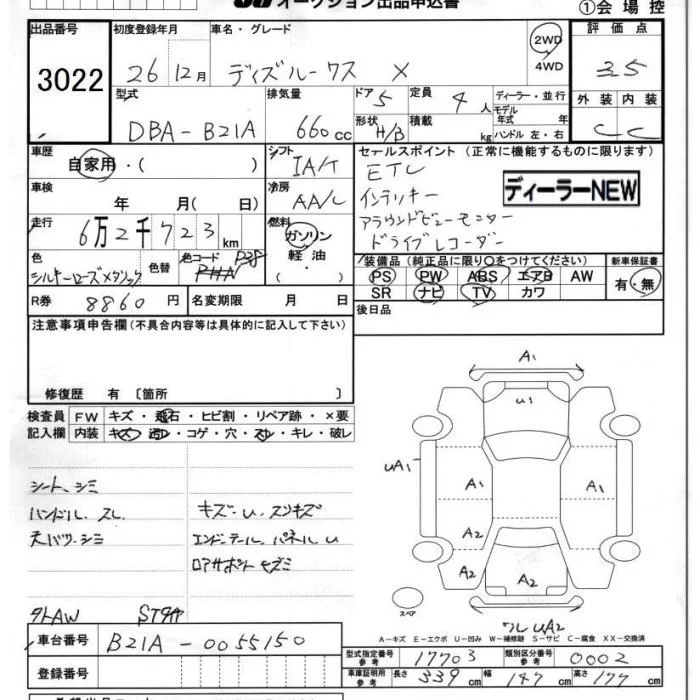 オークション出品申込書
①会場控
出品番号 3022
初度登録年月 26 12月
車名・グレード ディズルークス X
2WD
4WD
評価点 35
外装 内装
C C
型式 DBA-B21A
排気量 660cc
ドア 5
形状 H/B
定員 4人
積載 kg
ディーラー・並行
モデル年式 年
ハンドル 左・右
車歴 自家用・( )
シフト IA/T
車検 年 月(日)
冷房 AA/C
走行 6万2千723km
燃料 ガソリン
軽油
・( )
色 シルキーローズメタリック
色替
色コード P38
PHN
R券 8860円
名変期限 月 日
セールスポイント(正常に機能するものに限ります)
ETC
インテリキー
アラウンドビューモニター
ドライブレコーダー
ディーラーNEW
装備品(純正品に限り○をつけてください)
PS PW ABS エアB AW
SR ナビ TV カワ
新車保証書
有・無
後日品
注意事項申告欄(不具合内容等は具体的に記入して下さい)
修復歴 有〔箇所 〕
検査員記入欄
FW キズ・飛石・ヒビ割・リペア跡・×要
内装 キズ・汚れ・コゲ・穴・スレ・キレ・破レ
シート、シミ
ハンドル、スレ
天バリ、シミ
キズ・U、スリキズ
エンドテール、パネル U
ロアサポート キズミ
タトAW STタヤ
A1
U1
UA1
A1
A1
A2
A2
A2
スペア
ワレ UA2
A-キズ E-エクボ U-凹み W-補修跡 S-サビ C-腐食 XX-交換済
車台番号 B21A-0055150
登録番号
型式指定番号 参考 17703
類別区分番号 参考 0002
車庫証明用 参考
長さ 339cm
幅 147cm
高さ 177cm